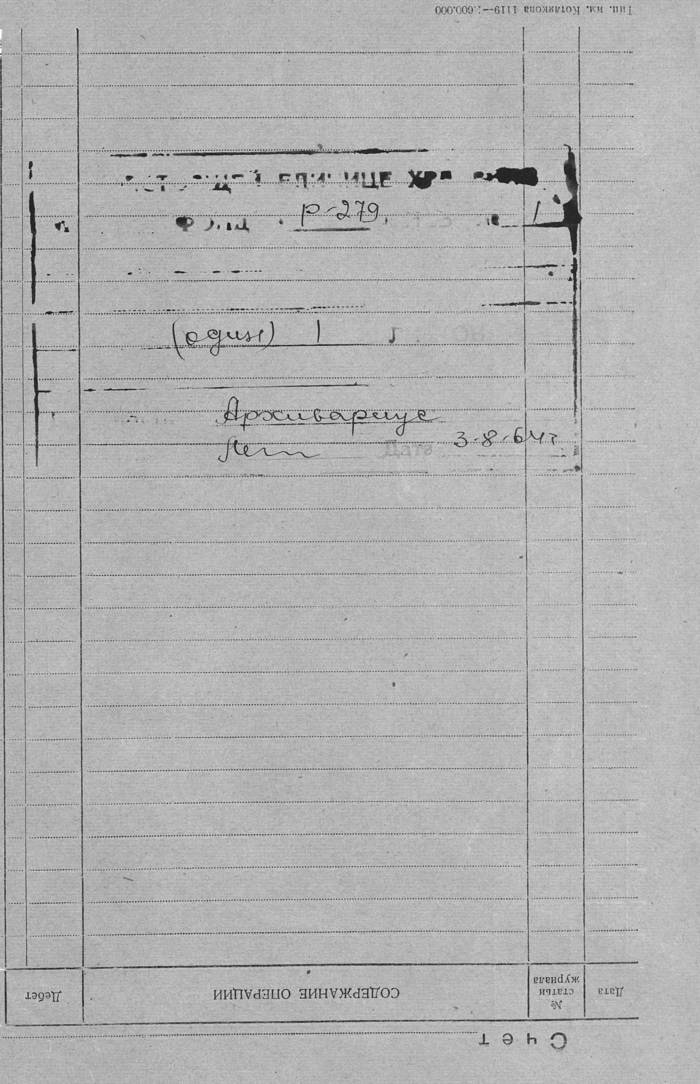 Тип. им. Котлякова 1119
ЕДИНИЦЕ
ФОНД Р-279. 1
(один) 1
Архивариус
Дата 3-8-64г
Дебет
СОДЕРЖАНИЕ ОПЕРАЦИИ
№ статьи журнала
Дата
Счет